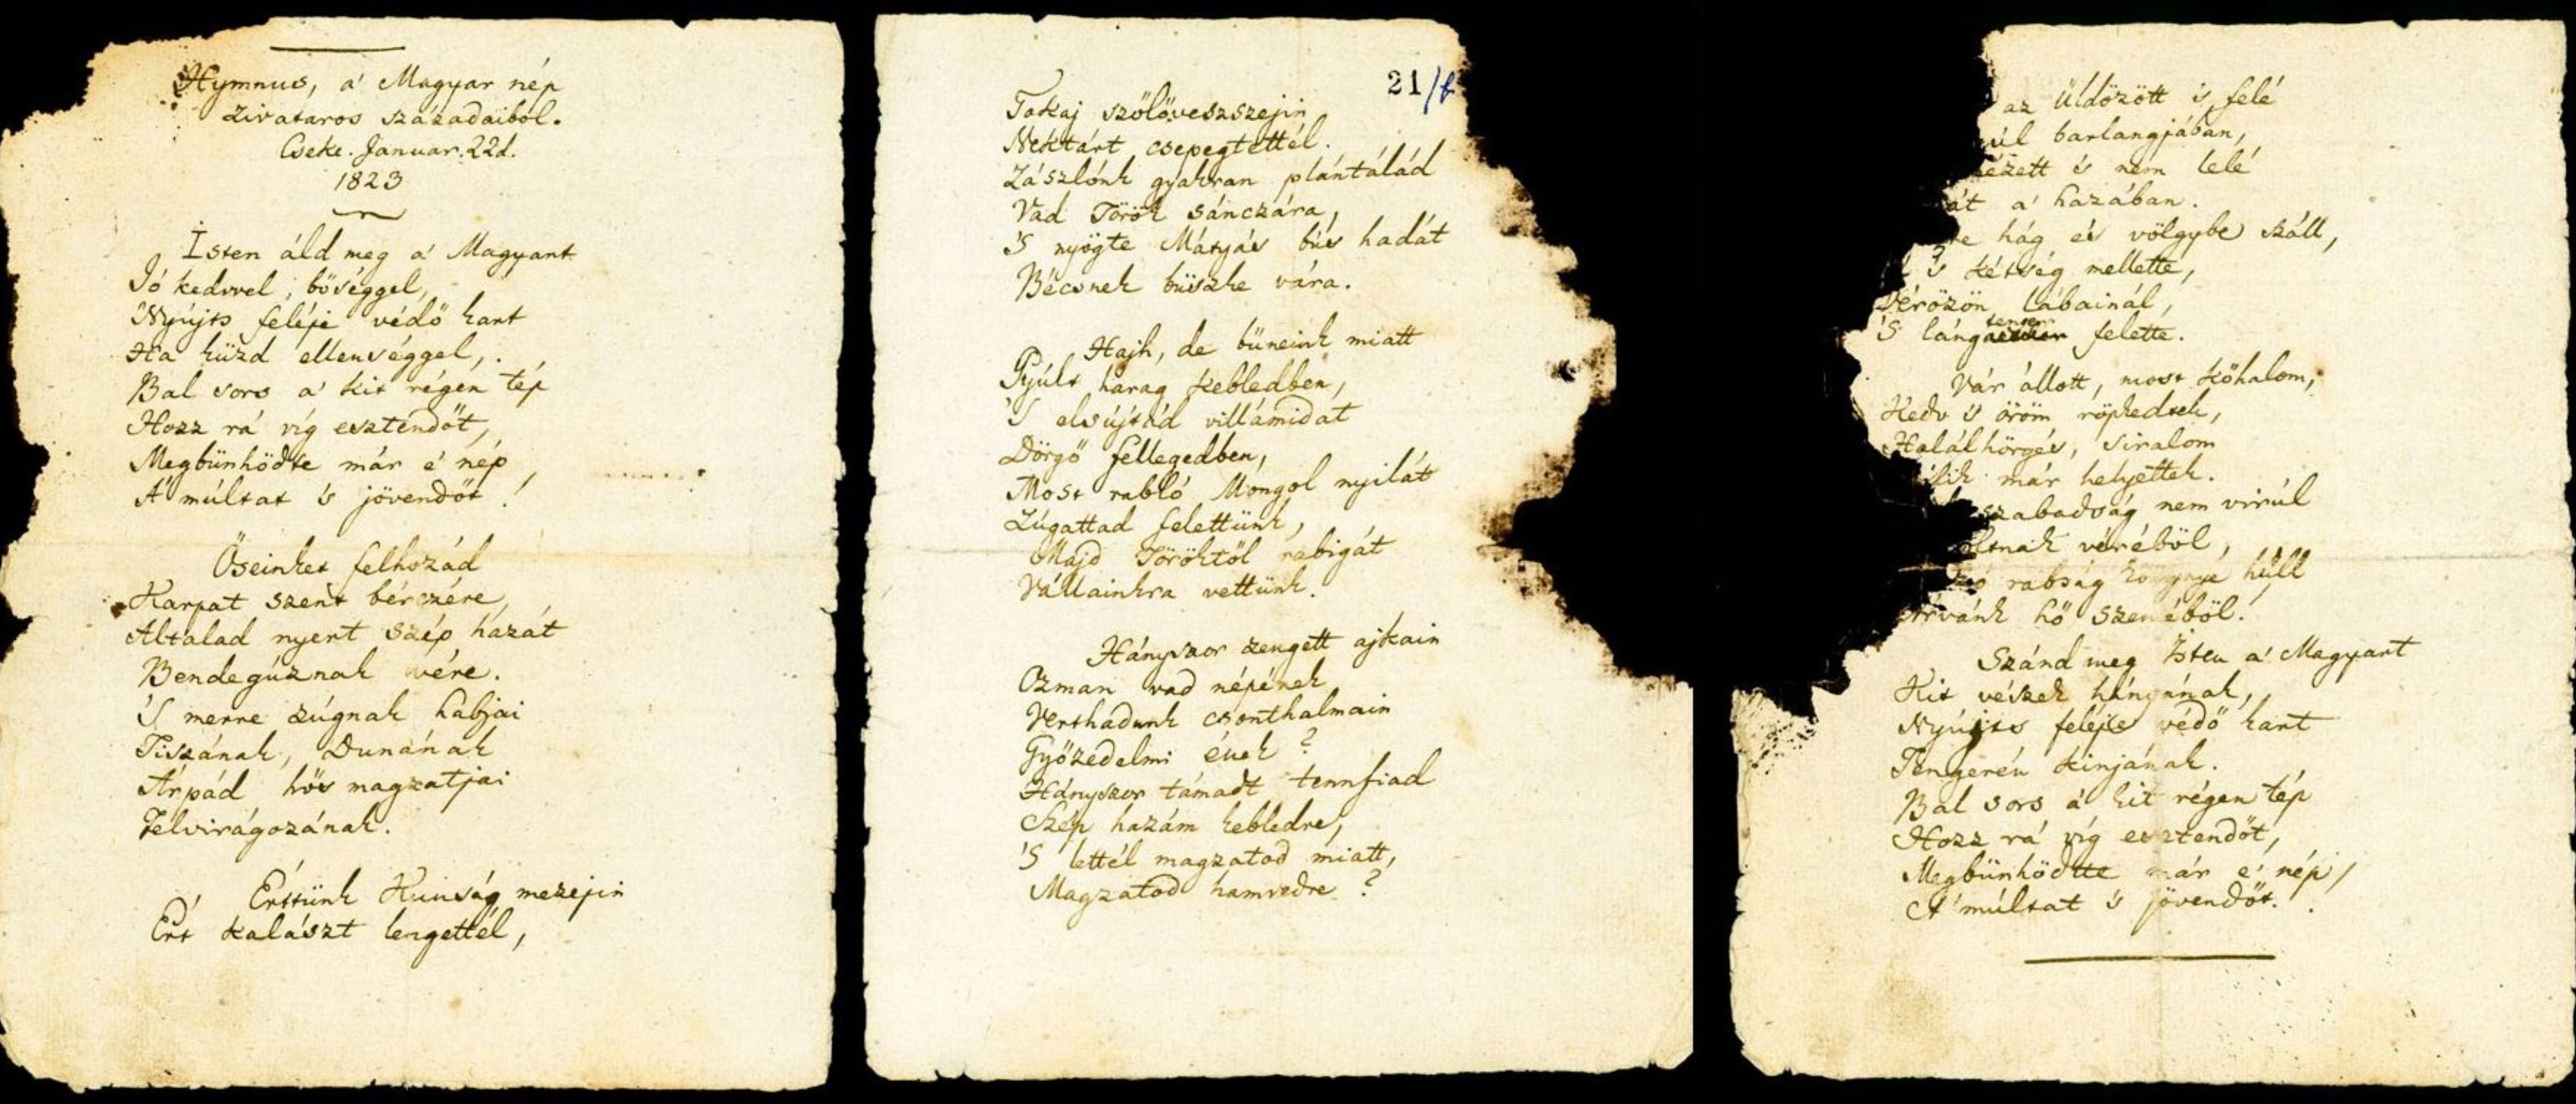 Hymnus, a' Magyar nép
zivataros századaiból.
Cseke. Januar. 22d.
1823
Isten áld meg a' Magyart
Jó kedvvel, bőséggel,
Nyújts feléje védő kart
Ha küzd ellenséggel,
Bal sors a' kit régen tép
Hozz rá víg esztendőt,
Megbünhödte már e' nép
A' múltat 's jövendőt!
Őseinket felhozád
Karpat szent bérczére,
Általad nyert szép hazát
Bendegúznak vére.
'S merre zúgnak habjai
Tiszának, Dunának
Árpád hős magzatjai
Felvirágozának.
Értünk Kunság mezejin
Ért kalászt lengettél,
21/b
Tokaj szőlővesszszejin
Nektárt csepegtettél.
Zászlónk gyakran plántálád
Vad Török sánczára,
'S nyögte Mátyás bús hadát
Bécsnek büszke vára.
Hajh, de büneink miatt
Gyúlt harag kebledben,
'S elsújtád villámidat
Dörgő fellegedben,
Most rabló Mongol nyilát
Zúgattad felettünk,
Majd Töröktől rabigát
Vállainkra vettünk.
Hányszor zengett ajkain
Ozman vad népének
Verthadunk csonthalmain
Győzedelmi ének?
Hányszor támadt tennfiad
Szép hazám kebledre,
'S lettél magzatod miatt,
Magzatod hamvedre?
az üldözött 's felé
barlangjában,
's nem lelé
a' hazában.
hág és völgybe száll,
's kétség mellette,
Vérözön lábainál,
'S lángtenger felette.
Vár állott, most kőhalom,
Kedv 's öröm röpkedtek,
Halálhörgés, siralom
már helyettek.
szabadság nem virúl
véréből,
rabság könnye hull
Árvánk hő szeméből!
Szánd meg Isten a' Magyart
Kit vészek hányának,
Nyújts feléje védő kart
Tengerén kínjának.
Bal sors a' kit régen tép
Hozz rá víg esztendőt,
Megbünhödte már e' nép,
A' múltat 's jövendőt.